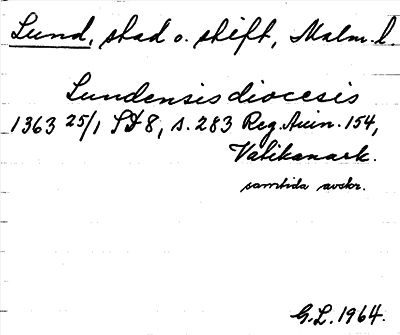 Lund, stad o. stift, Malm. l.
Lundensis diocesis
1363 25/1 SD 8, s. 283 Reg. Avin. 154,
Vatikanark.
samtida avskr.
G.L. 1964.